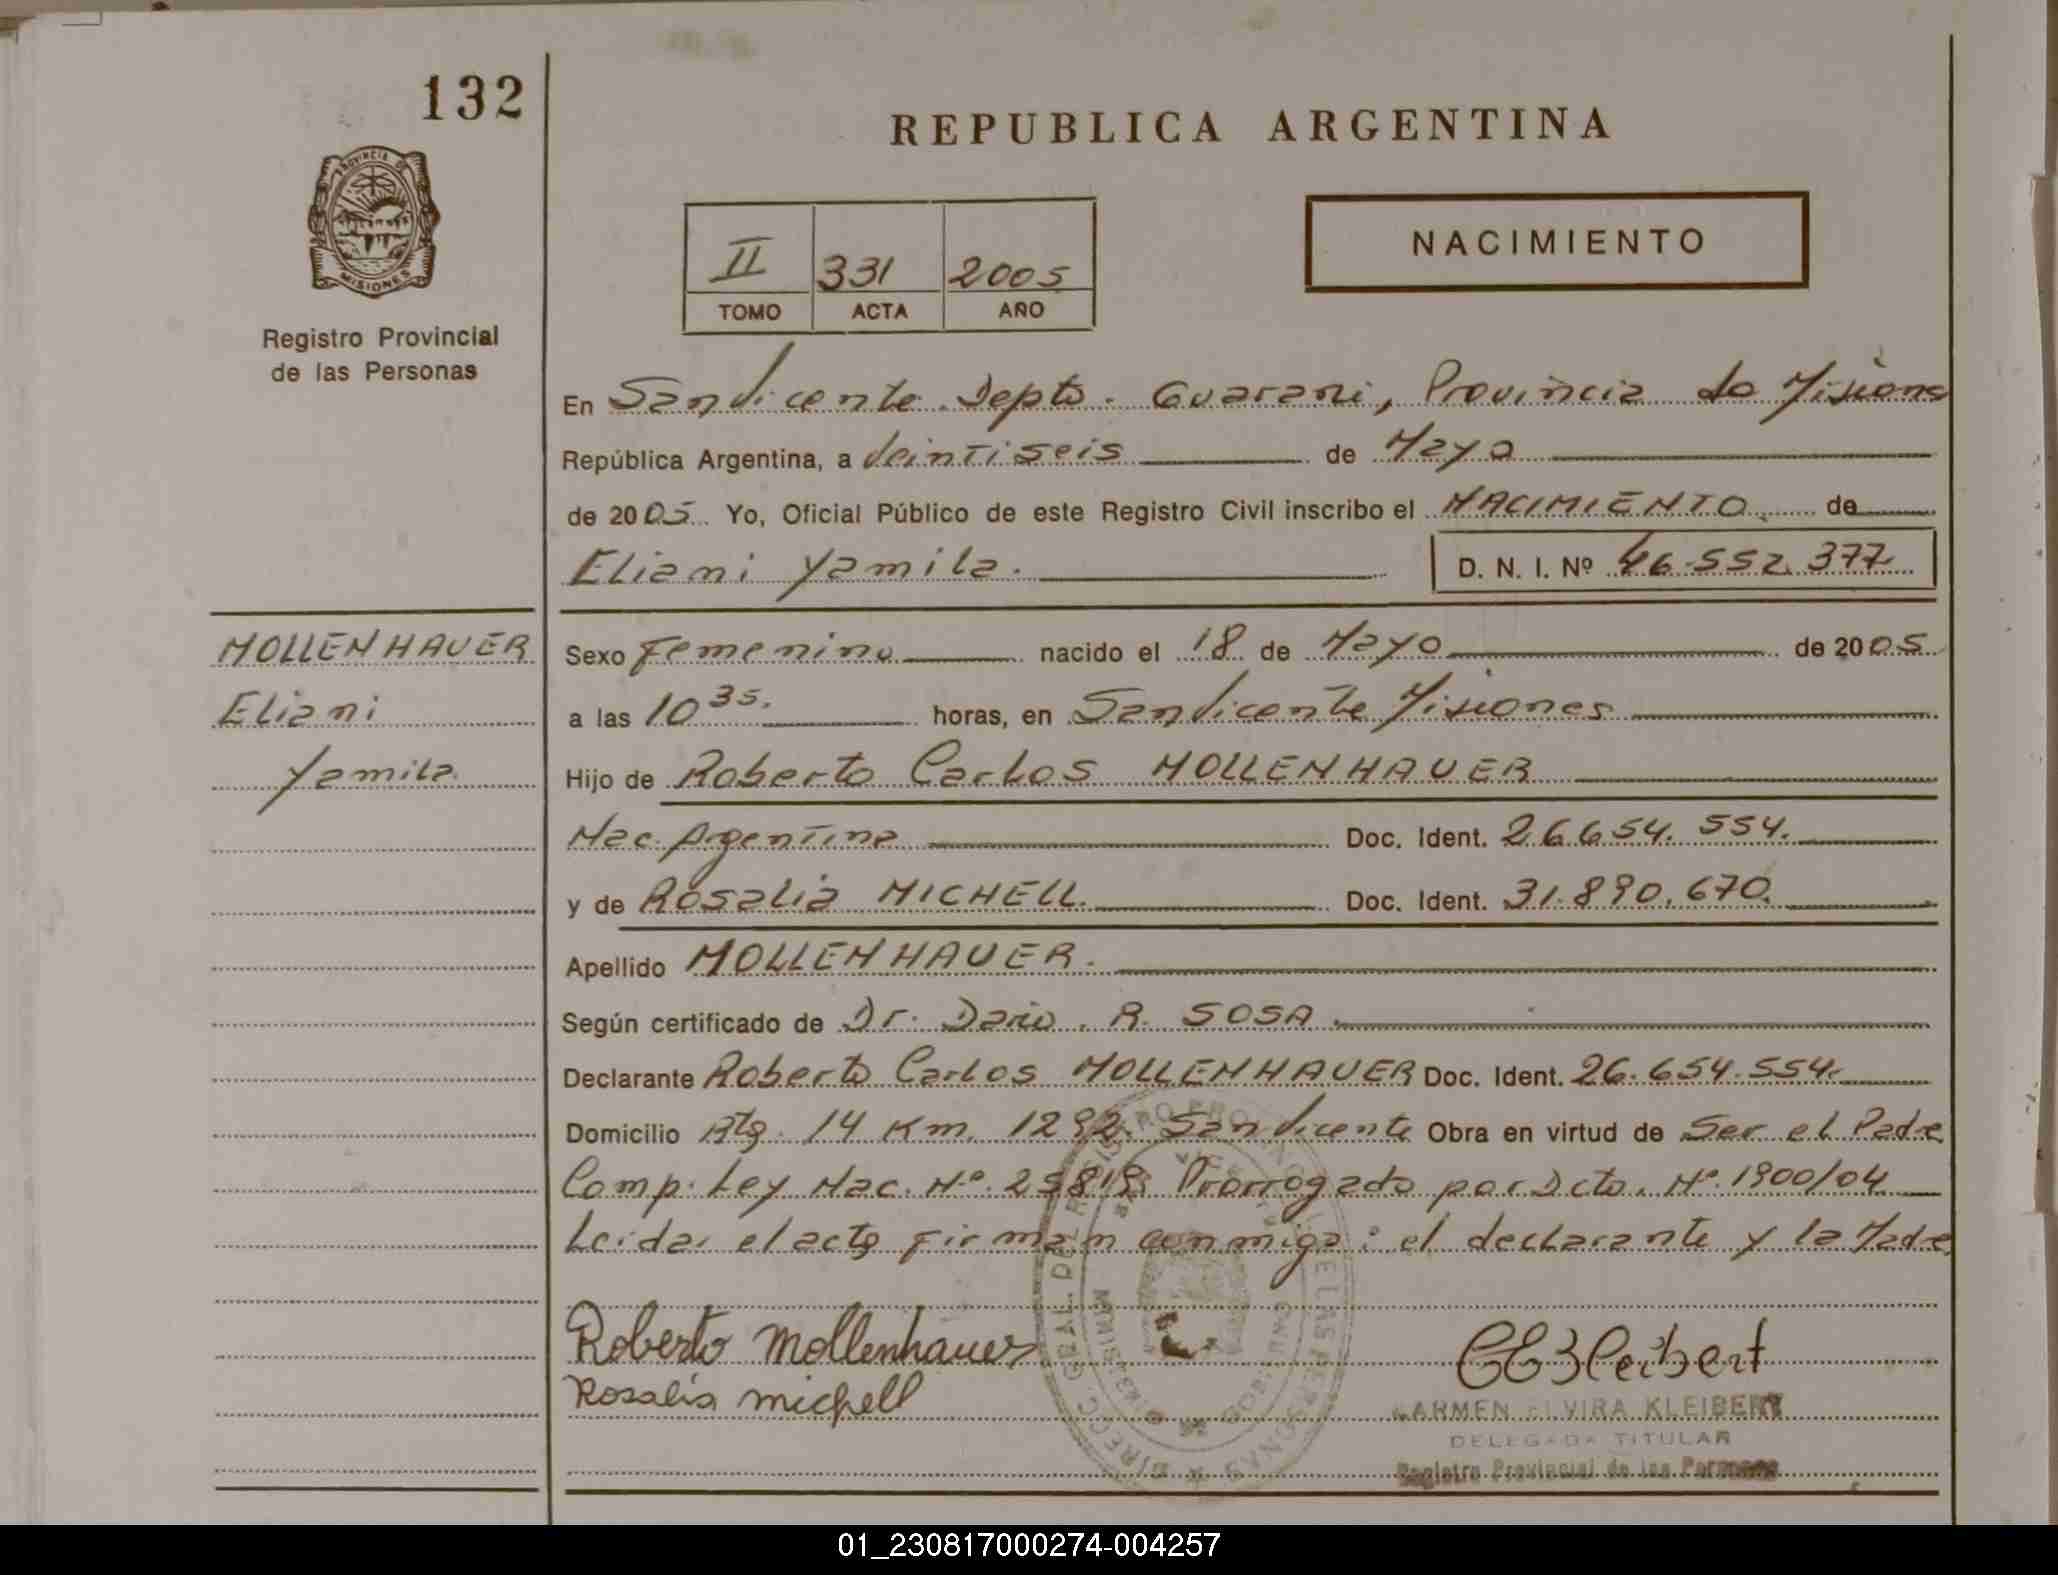 132
REPUBLICA ARGENTINA
PROVINCIA DE
MISIONES
Registro Provincial
de las Personas
II 331 2005
TOMO ACTA AÑO
NACIMIENTO
En San Vicente Depto. Guarani, Provincia de Misiones
República Argentina, a Veintiseis de Mayo
de 2005 Yo, Oficial Público de este Registro Civil inscribo el NACIMIENTO de
Eliani Yamila. D. N. I. Nº 46.552.377
MOLLENHAUER
Eliani
Yamila
Sexo Femenino nacido el 18 de Mayo de 2005
a las 10 35. horas, en San Vicente Misiones
Hijo de Roberto Carlos MOLLENHAUER
Nac. Argentina Doc. Ident. 26.654.554.
y de Rosalia MICHELL. Doc. Ident. 31.890.670.
Apellido MOLLENHAUER.
Según certificado de Dr. Dario R. SOSA.
Declarante Roberto Carlos MOLLENHAUER Doc. Ident. 26.654.554.
Domicilio Rta. 14 Km. 1292. San Vicente Obra en virtud de Ser el Padre
Comp. Ley Nac. Nº 25819. Prorrogado por Dcto. Nº 1900/04
Leida el acta firman conmigo: el declarante y la Madre
Roberto Mollenhauer
Rosalia michell
CEKleibert
CARMEN ELVIRA KLEIBERT
DELEGADA TITULAR
Registro Provincial de las Personas
DIRECC. GRAL. DEL REGISTRO PROVINCIAL DE LAS PERSONAS
01_230817000274-004257